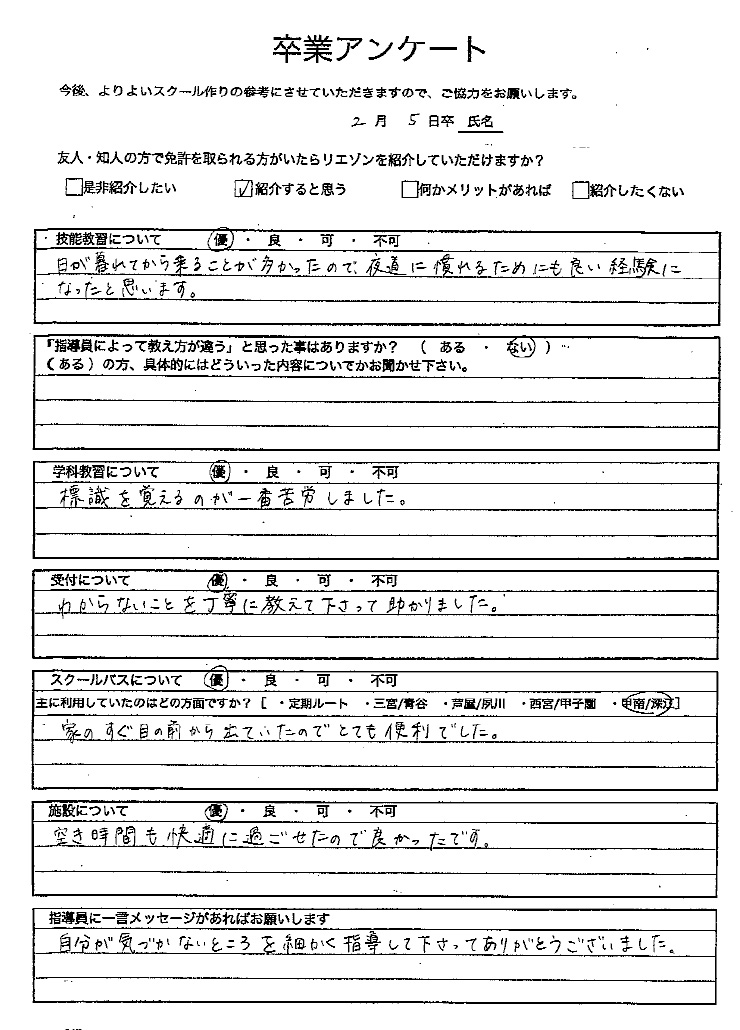 卒業アンケート
今後、よりよいスクール作りの参考にさせていただきますので、ご協力をお願いします。
2月 5日卒 氏名
友人・知人の方で免許を取られる方がいたらリエゾンを紹介していただけますか?
□是非紹介したい ☑紹介すると思う □何かメリットがあれば □紹介したくない
技能教習について 優 ・ 良 ・ 可 ・ 不可
日が暮れてから乗ることが多かったので、夜道に慣れるためにも良い経験に
なったと思います。
「指導員によって教え方が違う」と思った事はありますか? ( ある ・ ない )
( ある ) の方、具体的にはどういった内容についてかお聞かせ下さい。
学科教習について 優 ・ 良 ・ 可 ・ 不可
標識を覚えるのが一番苦労しました。
受付について 優 ・ 良 ・ 可 ・ 不可
わからないことを丁寧に教えて下さって助かりました。
スクールバスについて 優 ・ 良 ・ 可 ・ 不可
主に利用していたのはどの方面ですか? [ ・定期ルート ・三宮/青谷 ・芦屋/夙川 ・西宮/甲子園 ・甲南/深江]
家のすぐ目の前から出ていたのでとても便利でした。
施設について 優 ・ 良 ・ 可 ・ 不可
空き時間も快適に過ごせたので良かったです。
指導員に一言メッセージがあればお願いします
自分が気づかないところを細かく指導して下さってありがとうございました。